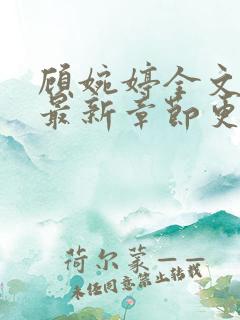 顾婉婷全文
最新章节更
荷尔蒙——
未经同意禁止转载